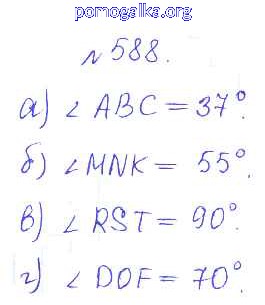 pomogalka.org
№588.
а) ∠ABC = 37°.
б) ∠MNK = 55°.
в) ∠RST = 90°.
г) ∠DOF = 70°.